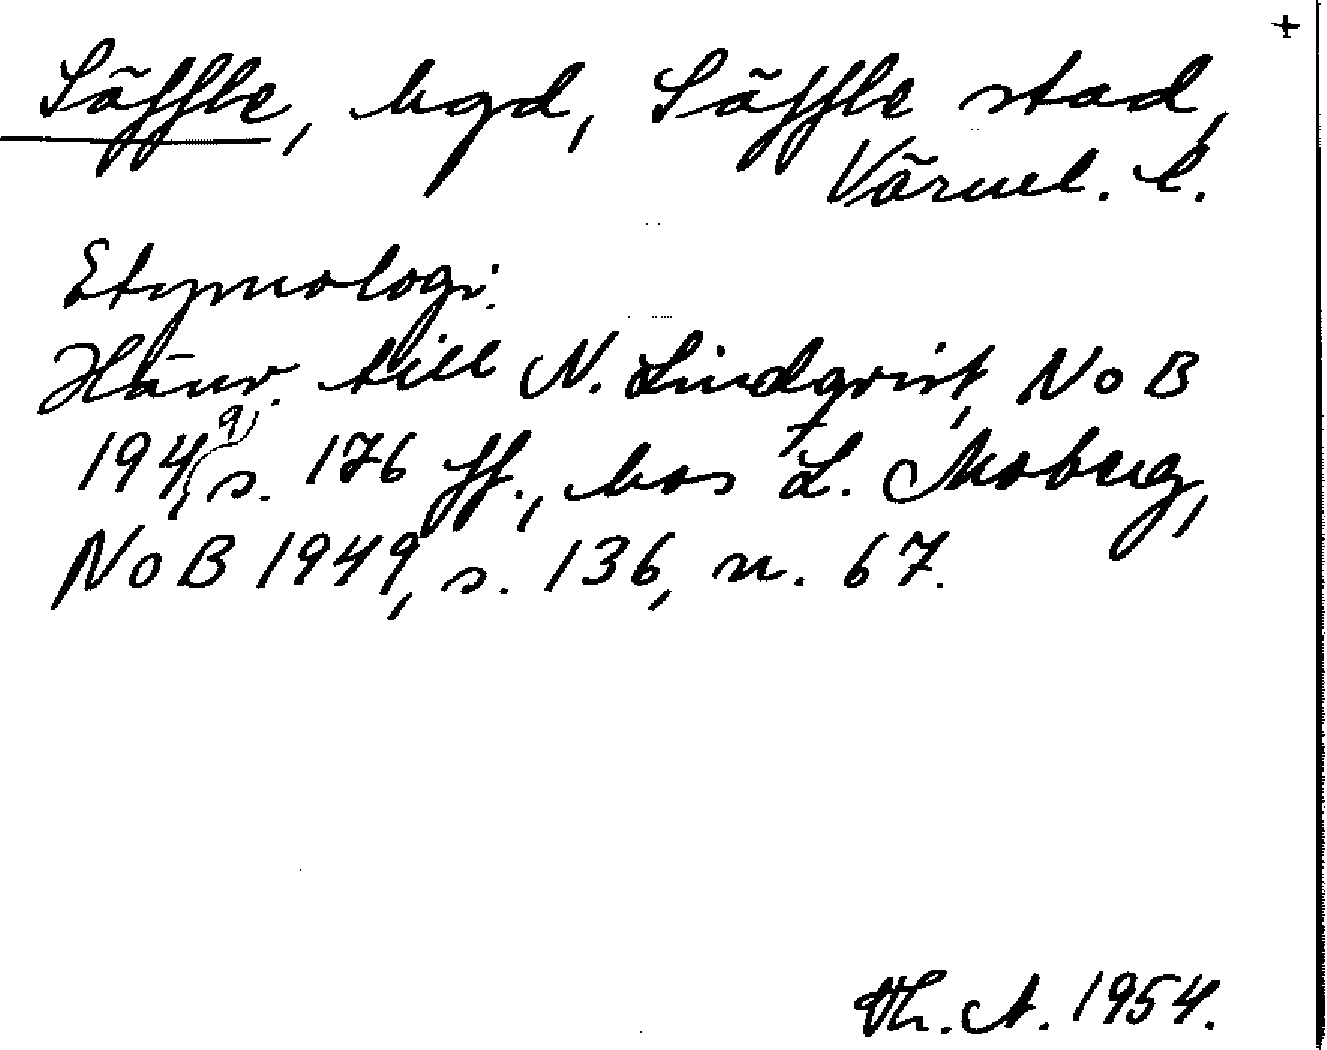 +
Säffle, hgd, Säffle stad,
Värml. l.
Etymologi.
Hänv. till N. Lindqvist, NoB
1949, s. 176 ff., hos L. Moberg,
NoB 1949, s. 136, n. 67.
Th. A. 1954.